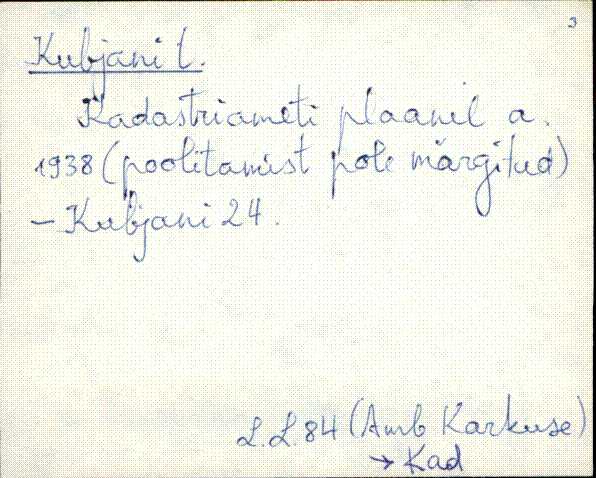 3
Kubjani t.
Kadastriameti plaanil a.
1938 (poolitamist pole märgitud)
– Kubjani 24.
L.L. 84 (Amb Karkuse)
→ Kad